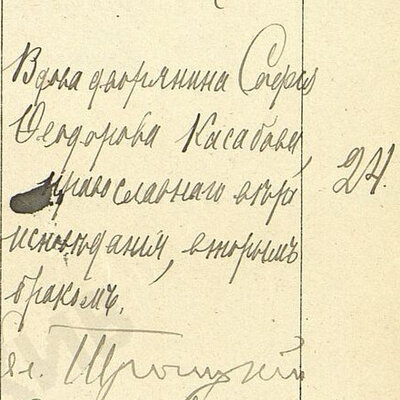 Вдова дворянина София
Ѳеодорова Касабова, 24.
православнаго вѣро
исповѣданія, вторымъ
бракомъ.
Троицкій